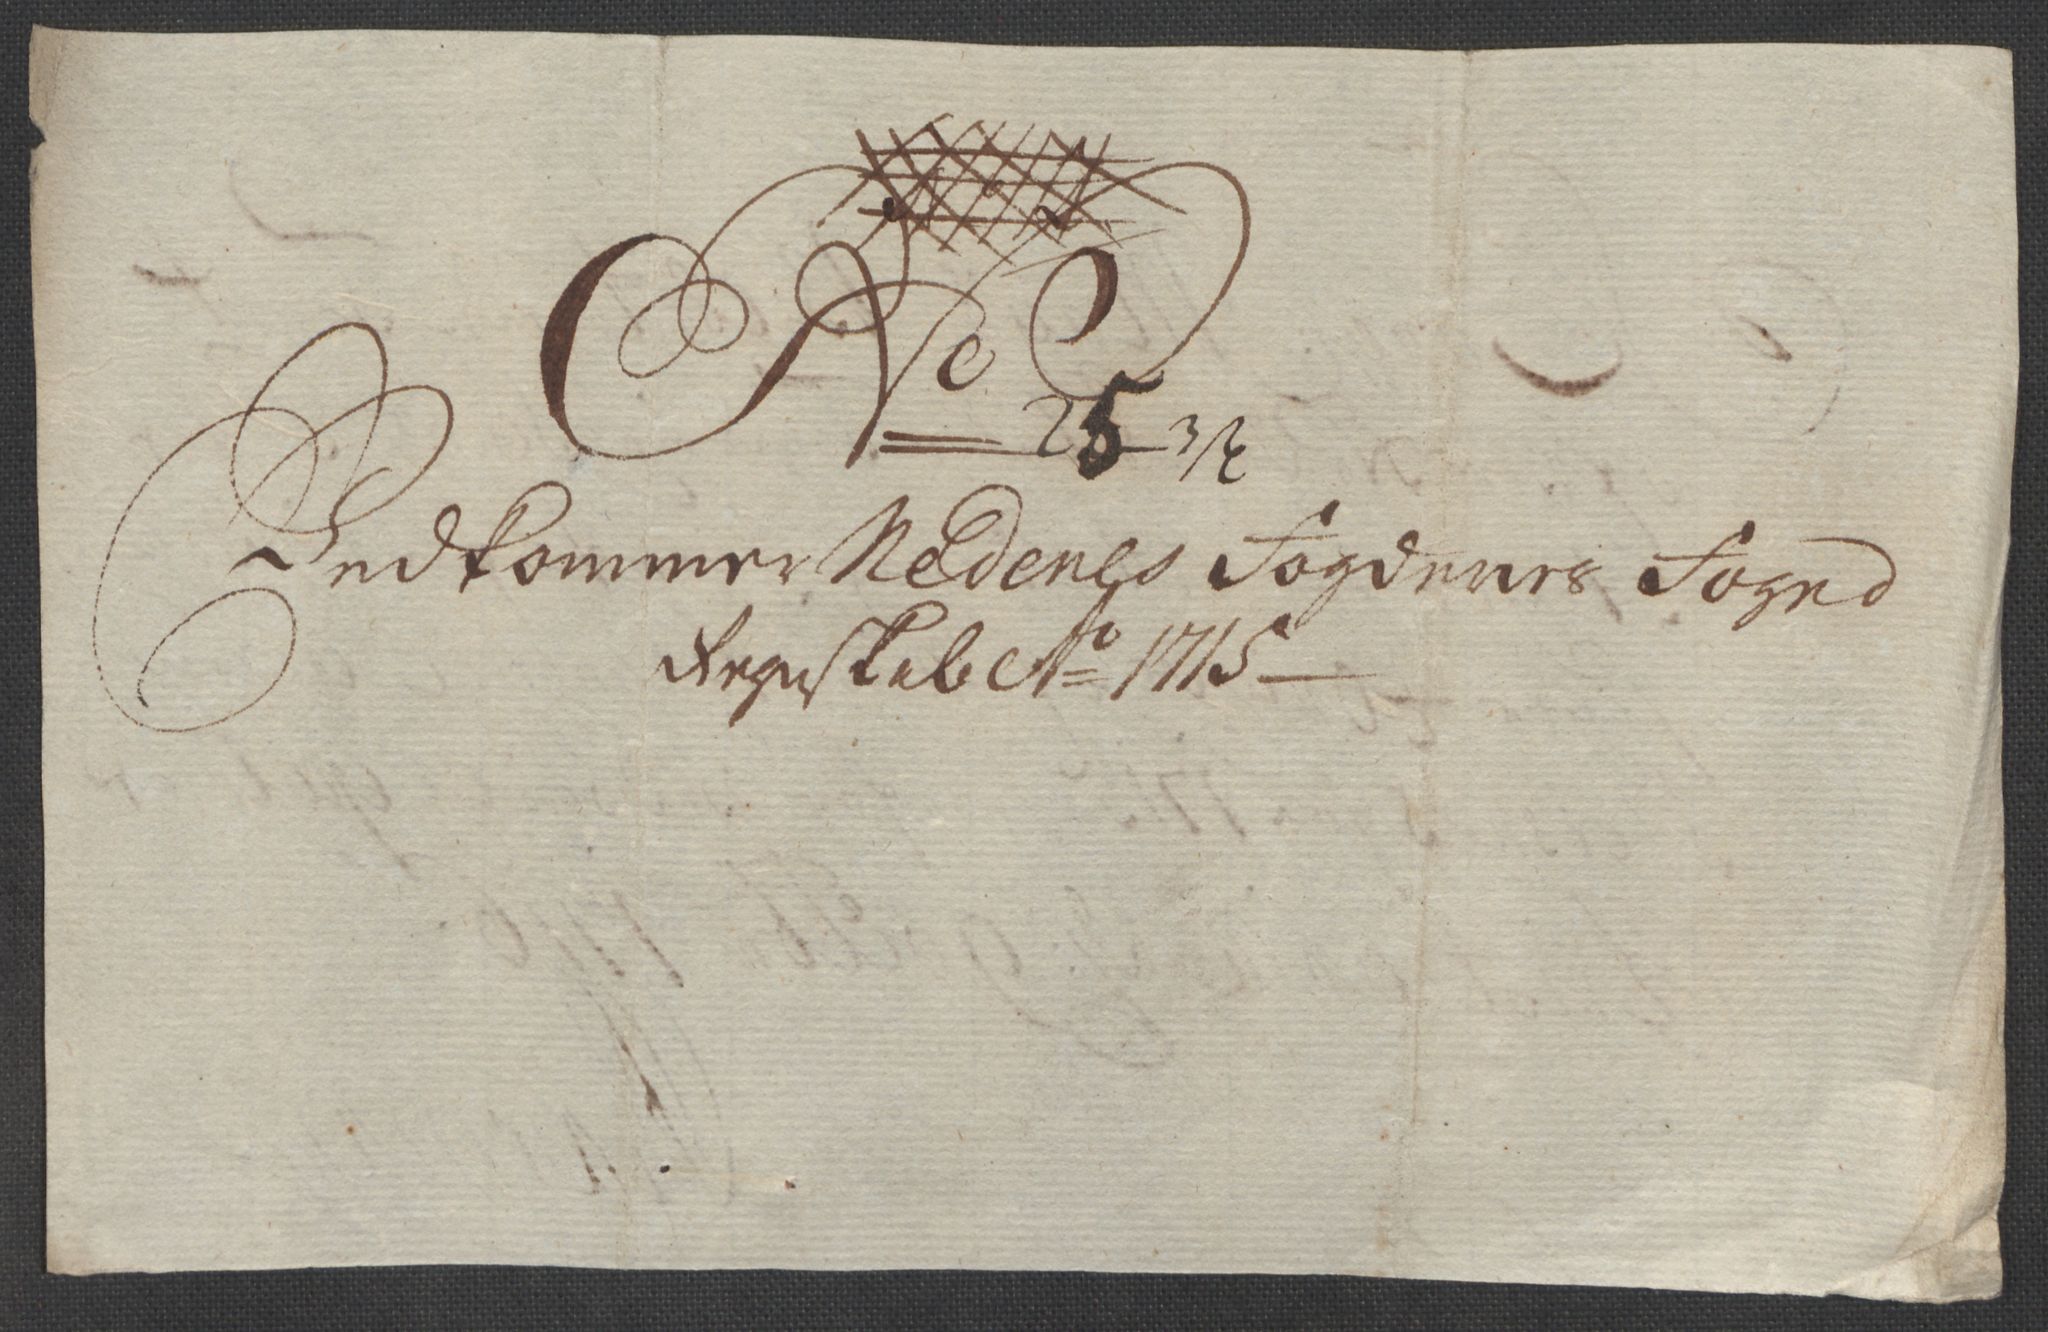 No 25 3/4
Vedkommer Nedenes Fogderies Foged
Regnskab Ao 1715